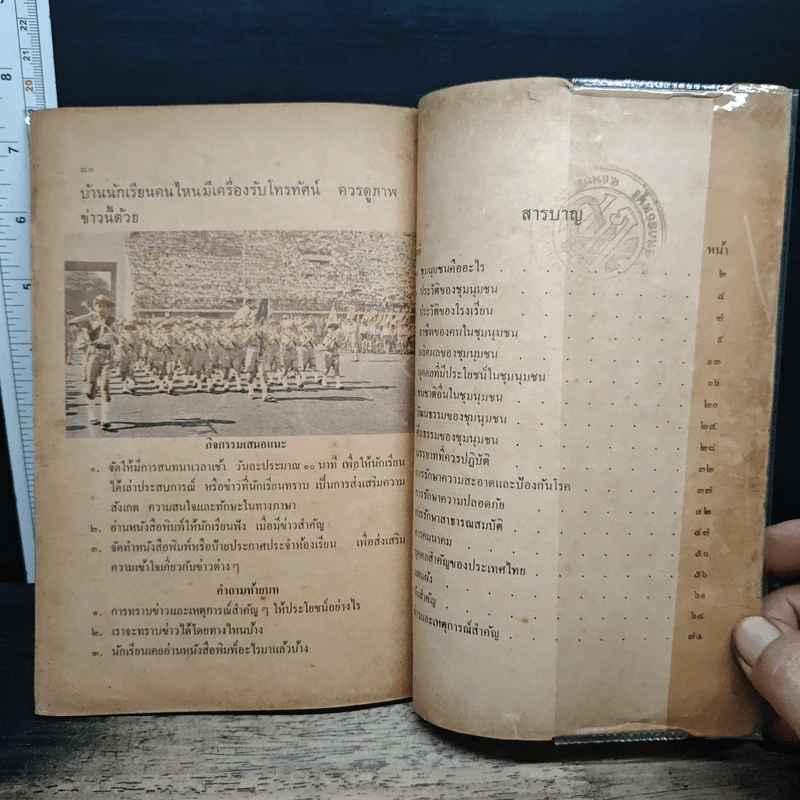 ๘๐
บ้านนักเรียนคนไหนมีเครื่องรับโทรทัศน์ ควรดูภาพ
ข่าวนี้ด้วย
กิจกรรมเสนอแนะ
๑. จัดให้มีการสนทนาเวลาเช้า วันละประมาณ ๑๐ นาที เพื่อให้นักเรียน
ได้เล่าประสบการณ์ หรือข่าวที่นักเรียนทราบ เป็นการส่งเสริมความ
สังเกต ความสนใจและทักษะในทางภาษา
๒. อ่านหนังสือพิมพ์ให้นักเรียนฟัง เมื่อมีข่าวสำคัญ
๓. จัดทำหนังสือพิมพ์หรือป้ายประกาศประจำห้องเรียน เพื่อส่งเสริม
ความเข้าใจเกี่ยวกับข่าวต่าง ๆ
คำถามท้ายบท
๑. การทราบข่าวและเหตุการณ์สำคัญ ๆ ให้ประโยชน์อย่างไร
๒. เราจะทราบข่าวได้โดยทางไหนบ้าง
๓. นักเรียนเคยอ่านหนังสือพิมพ์อะไรมาแล้วบ้าง
สารบาญ
หน้า
ชุมนุมชนคืออะไร ๒
ประวัติของชุมนุมชน ๔
ประวัติของโรงเรียน ๗
อาชีพของคนในชุมนุมชน ๙
ผลิตผลของชุมนุมชน ๑๓
บุคคลที่มีประโยชน์ในชุมนุมชน ๑๖
ชนชาติอื่นในชุมนุมชน ๒๐
วัฒนธรรมของชุมนุมชน ๒๔
ศีลธรรมของชุมนุมชน ๒๘
มรรยาทที่ควรปฏิบัติ ๓๒
การรักษาความสะอาดและป้องกันโรค ๓๗
การรักษาความปลอดภัย ๔๒
การรักษาสาธารณสมบัติ ๔๗
การคมนาคม ๕๐
บุคคลสำคัญของประเทศไทย ๕๖
แผนผัง ๖๑
วันสำคัญ ๖๔
ข่าวและเหตุการณ์สำคัญ ๗๘
7
8
6
5
3
22
21
20
19